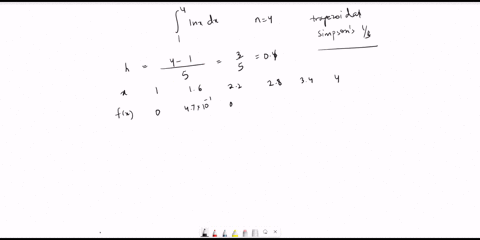 ∫₁⁴ lnx dx n=4 trapezoidal
simpson's 1/3
h = (4-1)/5 = 3/5 = 0.6
x 1 1.6 2.2 2.8 3.4 4
f(x) 0 4.7×10⁻¹ 0